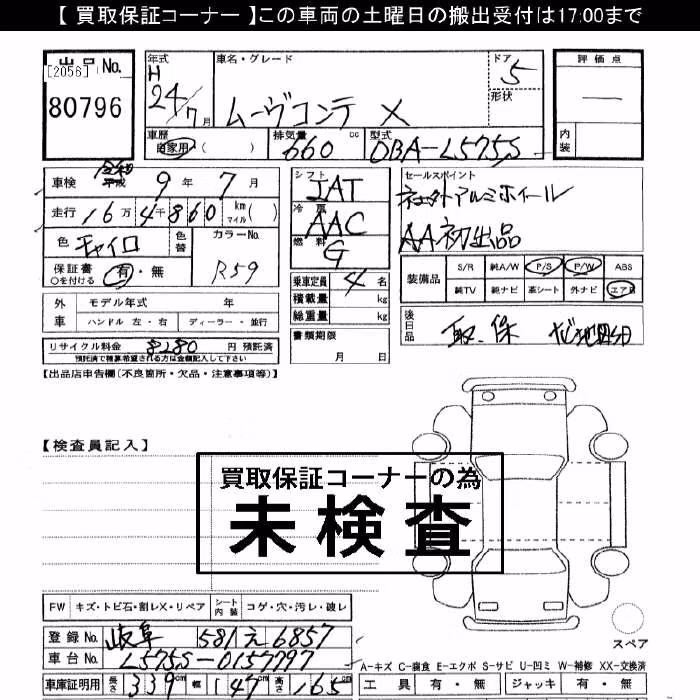 【 買取保証コーナー 】この車両の土曜日の搬出受付は17:00まで
出品 No.
[2056]
80796
年式 H 24/7月
車名・グレード
ムーヴコンテ X
ドア 5
形状
評価点
内装
車歴 自家用・( )
排気量 660 cc
型式 DBA-L575S
車検 令和 平成 9 年 7 月
走行 16万 4千 860 km マイル ( )
色 モカイロ
色替
カラーNo. R59
保証書 ○を付ける 有・無
シフト IAT
冷房 AAC
燃料 G
乗車定員 4 名
積載量 kg
総重量 kg
書類期限
月 日
セールスポイント
社外アルミホイール
AA初出品
装備品
S/R 純A/W P/S P/W ABS
純TV 純ナビ 革シート 外ナビ エアB
後日品 取.保
外車
モデル年式 年
ハンドル 左・右 ディーラー・並行
リサイクル料金 8280 円 預託済
預託済で精算希望される方は金額記入して下さい
【出品店申告欄(不良箇所・欠品・注意事項等)】
【検査員記入】
買取保証コーナーの為
未検査
FW キズ・トビ石・割レX・リペア シート内装 コゲ・穴・汚レ・破レ
登録No. 岐阜 581 え 6857
車台No. L575S-0157797
車庫証明用 長さ 339cm 幅 147cm 高さ 165cm
スペア
A-キズ C-腐食 E-エクボ S-サビ U-凹ミ W-補修 XX-交換済
工具 有・無 ジャッキ 有・無